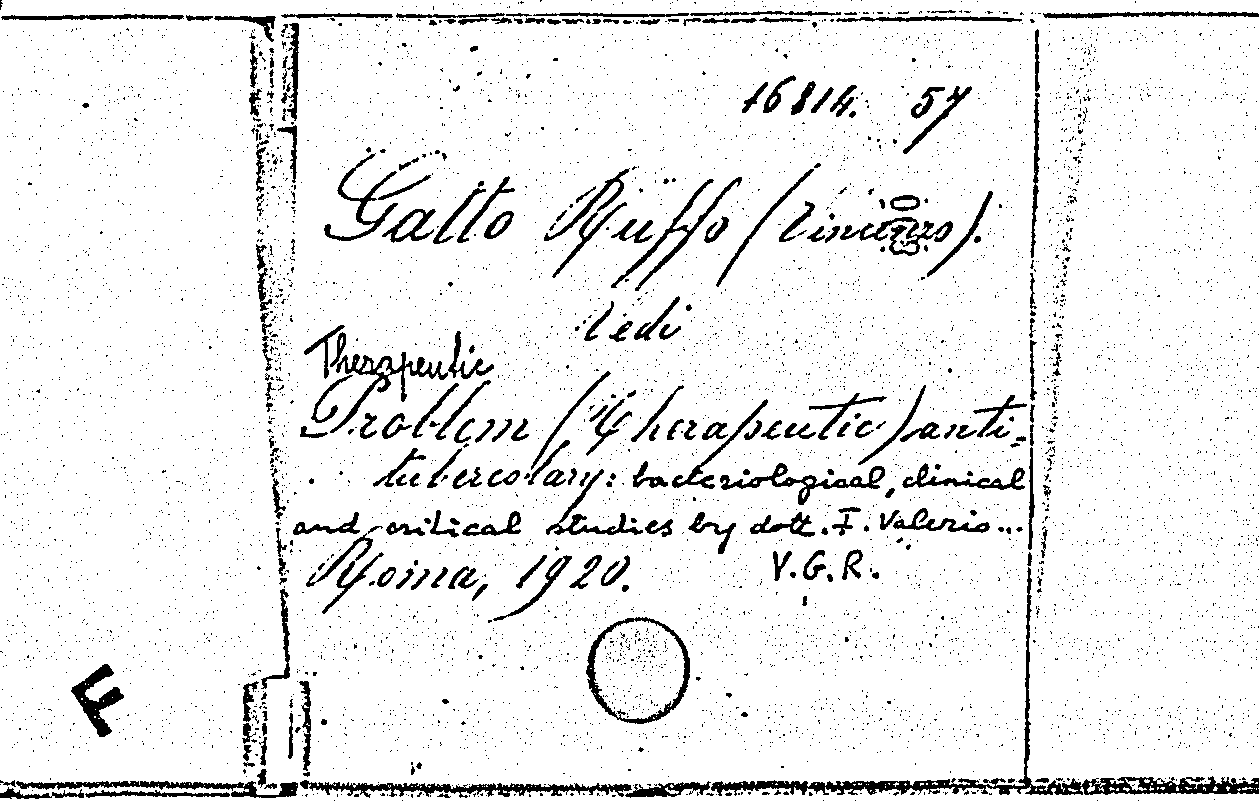 16814. 57
Gatto Ruffo (Vincenzo).
Vedi
Therapeutic
Problem (Therapeutic) anti-
tubercolary: bacteriological, clinical
and critical studies by dott. F. Valerio...
Roma, 1920. V.G.R.
F